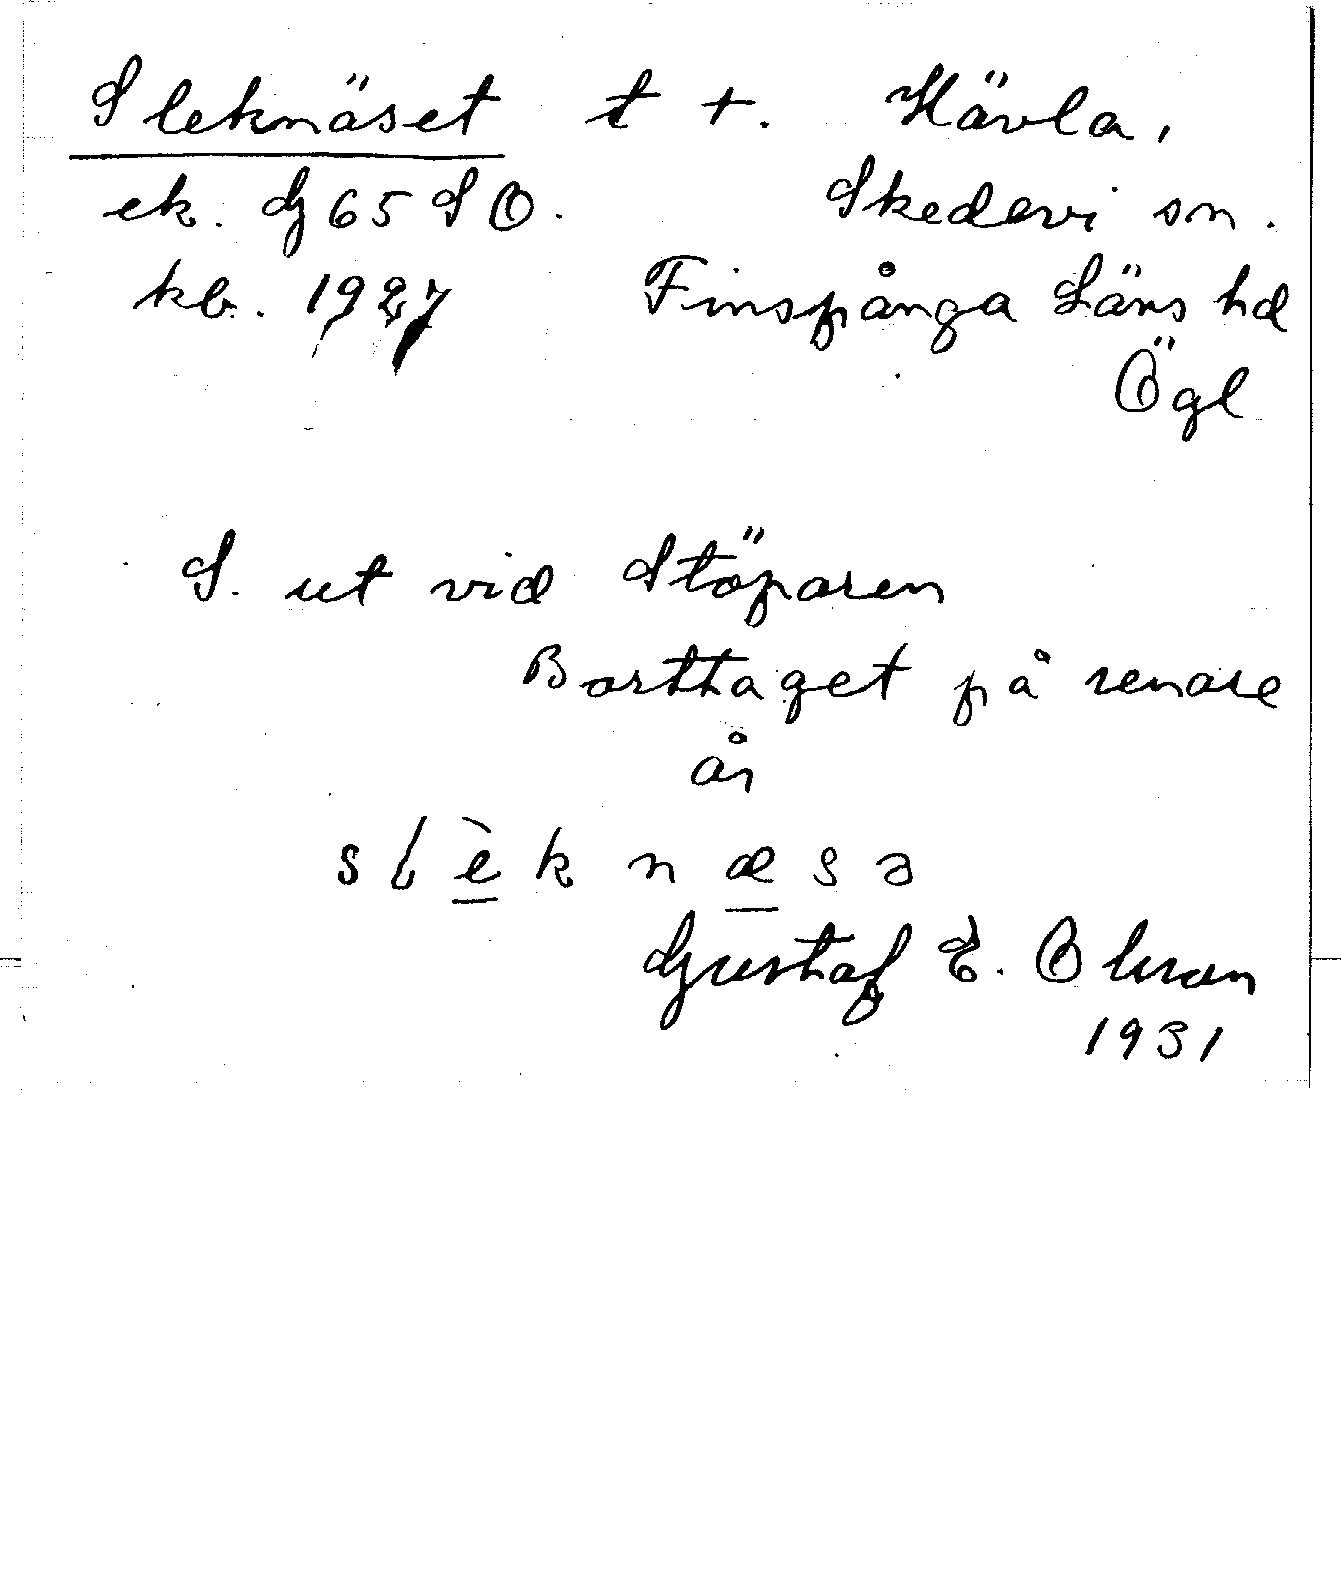 Sleknäset t +. Hävla,
ek. G65SO. Skedevi sn.
kb. 1927 Finspånga Läns hd
Ögl
S. ut vid Stöparen
Borttaget på senare
år
s l è k n æ s ə
Gustaf E. Olsson
1931